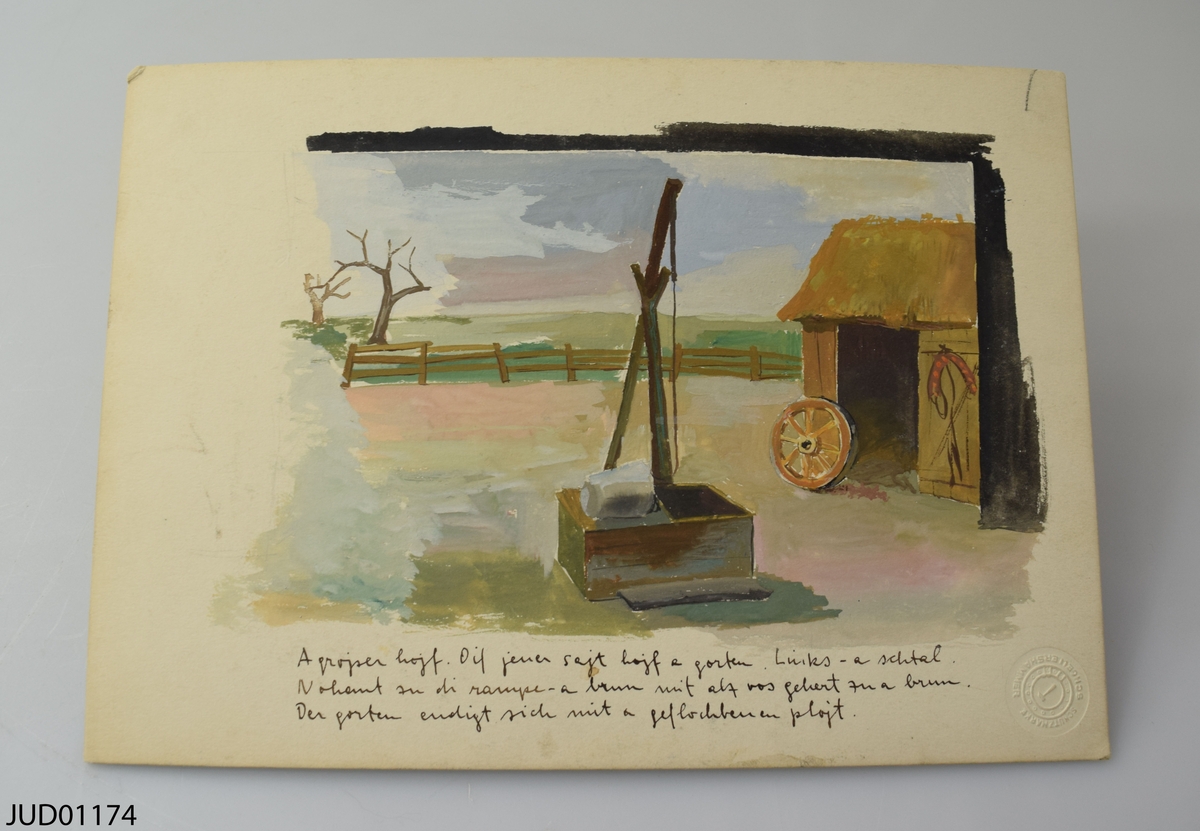 A grojser hojf. Oif jener sajt hojf a gorten. Links - a schtal.
Nohent zu di rampe - a brun mit alz vos gehert zu a brun.
Der gorten endigt sich mit a geflochtenen plojt.
JUD01174